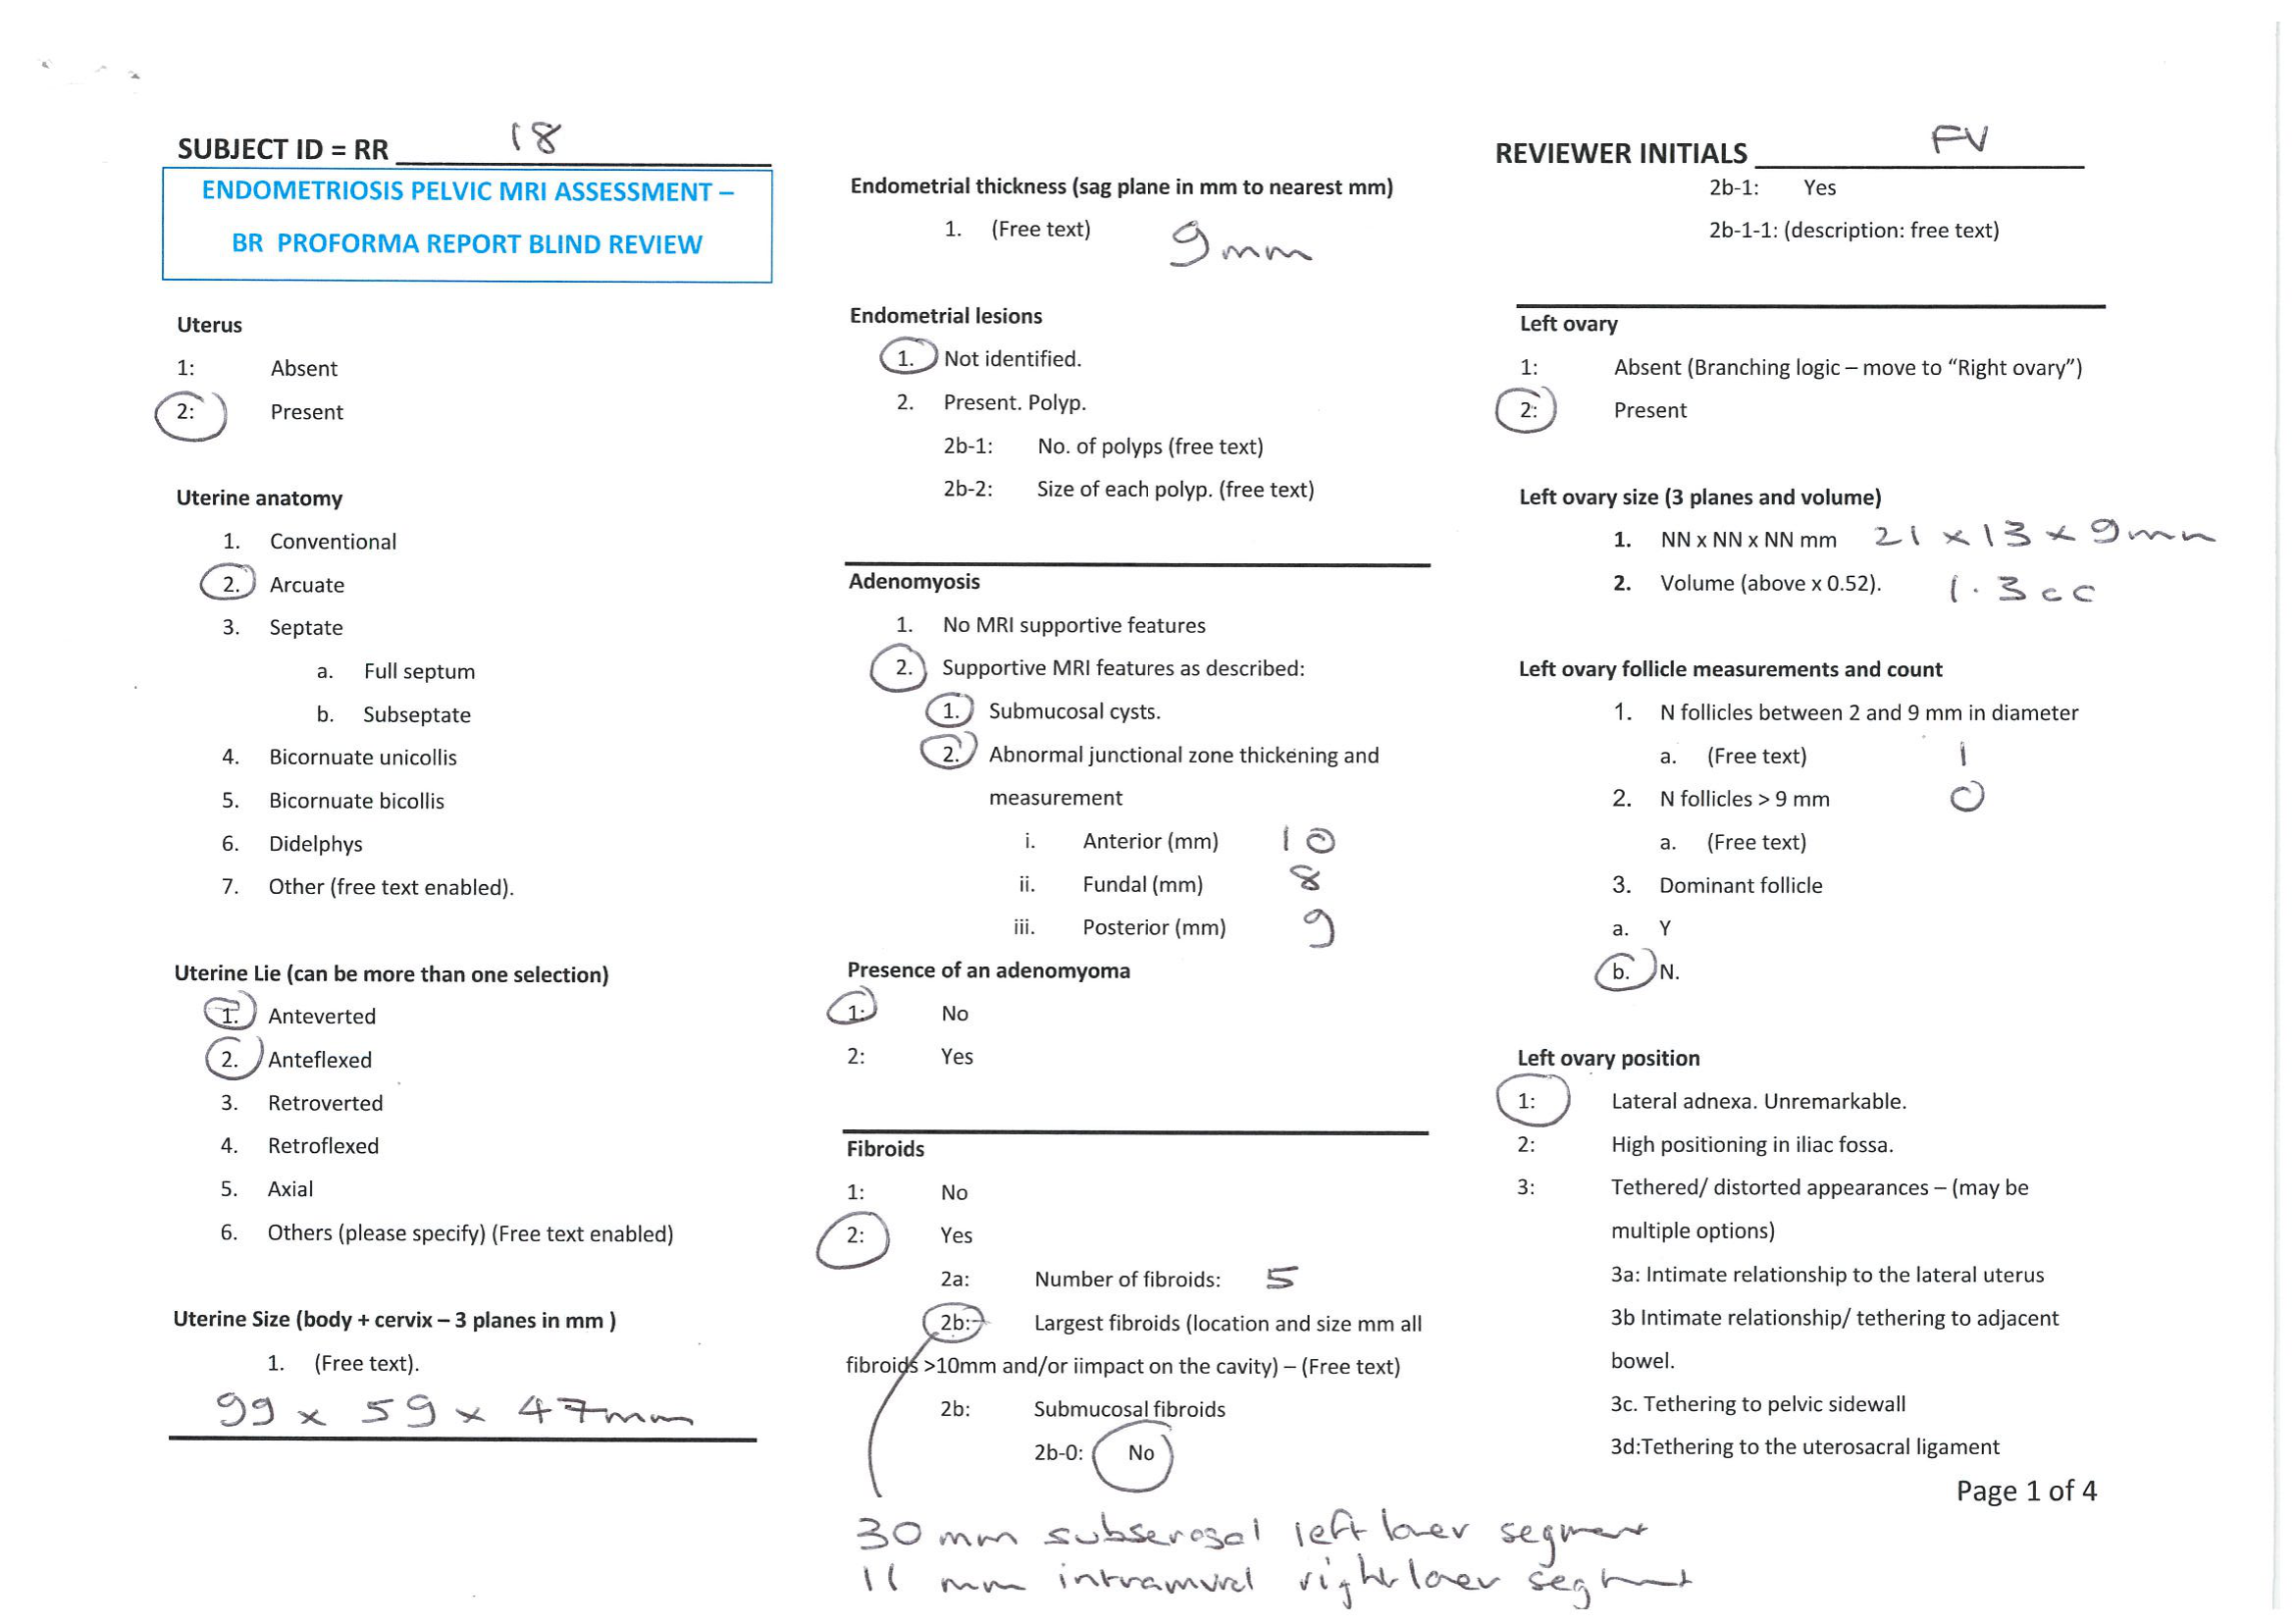 SUBJECT ID = RR 18
ENDOMETRIOSIS PELVIC MRI ASSESSMENT –
BR PROFORMA REPORT BLIND REVIEW
Uterus
1: Absent
2: Present
Uterine anatomy
1. Conventional
2. Arcuate
3. Septate
a. Full septum
b. Subseptate
4. Bicornuate unicollis
5. Bicornuate bicollis
6. Didelphys
7. Other (free text enabled).
Uterine Lie (can be more than one selection)
1. Anteverted
2. Anteflexed
3. Retroverted
4. Retroflexed
5. Axial
6. Others (please specify) (Free text enabled)
Uterine Size (body + cervix – 3 planes in mm )
1. (Free text).
99 x 59 x 47mm
Endometrial thickness (sag plane in mm to nearest mm)
1. (Free text) 9mm
Endometrial lesions
1. Not identified.
2. Present. Polyp.
2b-1: No. of polyps (free text)
2b-2: Size of each polyp. (free text)
Adenomyosis
1. No MRI supportive features
2. Supportive MRI features as described:
1. Submucosal cysts.
2. Abnormal junctional zone thickening and
measurement
i. Anterior (mm) 10
ii. Fundal (mm) 8
iii. Posterior (mm) 9
Presence of an adenomyoma
1: No
2: Yes
Fibroids
1: No
2: Yes
2a: Number of fibroids: 5
2b: Largest fibroids (location and size mm all
fibroids >10mm and/or iimpact on the cavity) – (Free text)
2b: Submucosal fibroids
2b-0: No
30 mm subserosal left lower segment
11 mm intramural right lower segment
REVIEWER INITIALS FV
2b-1: Yes
2b-1-1: (description: free text)
Left ovary
1: Absent (Branching logic – move to “Right ovary”)
2: Present
Left ovary size (3 planes and volume)
1. NN x NN x NN mm 21 x 13 x 9mm
2. Volume (above x 0.52). 1.3cc
Left ovary follicle measurements and count
1. N follicles between 2 and 9 mm in diameter
a. (Free text) 1
2. N follicles > 9 mm 0
a. (Free text)
3. Dominant follicle
a. Y
b. N.
Left ovary position
1: Lateral adnexa. Unremarkable.
2: High positioning in iliac fossa.
3: Tethered/ distorted appearances – (may be
multiple options)
3a: Intimate relationship to the lateral uterus
3b Intimate relationship/ tethering to adjacent
bowel.
3c. Tethering to pelvic sidewall
3d:Tethering to the uterosacral ligament
Page 1 of 4